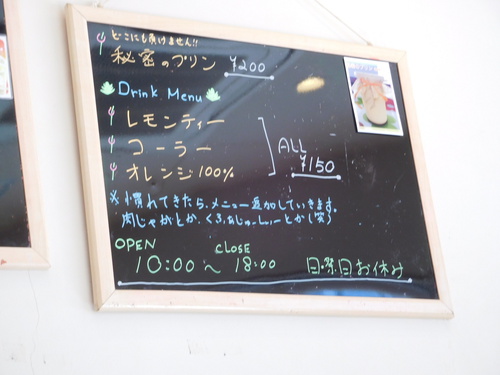 どこにも負けません!!
秘密のプリン ¥200
Drink Menu
レモンティー
コーラー
オレンジ100%
ALL
¥150
※慣れてきたら、メニュー追加していきます。
肉じゃがとか、
とか(笑)
OPEN
CLOSE
10:00~ 18:00 日・祭日お休み